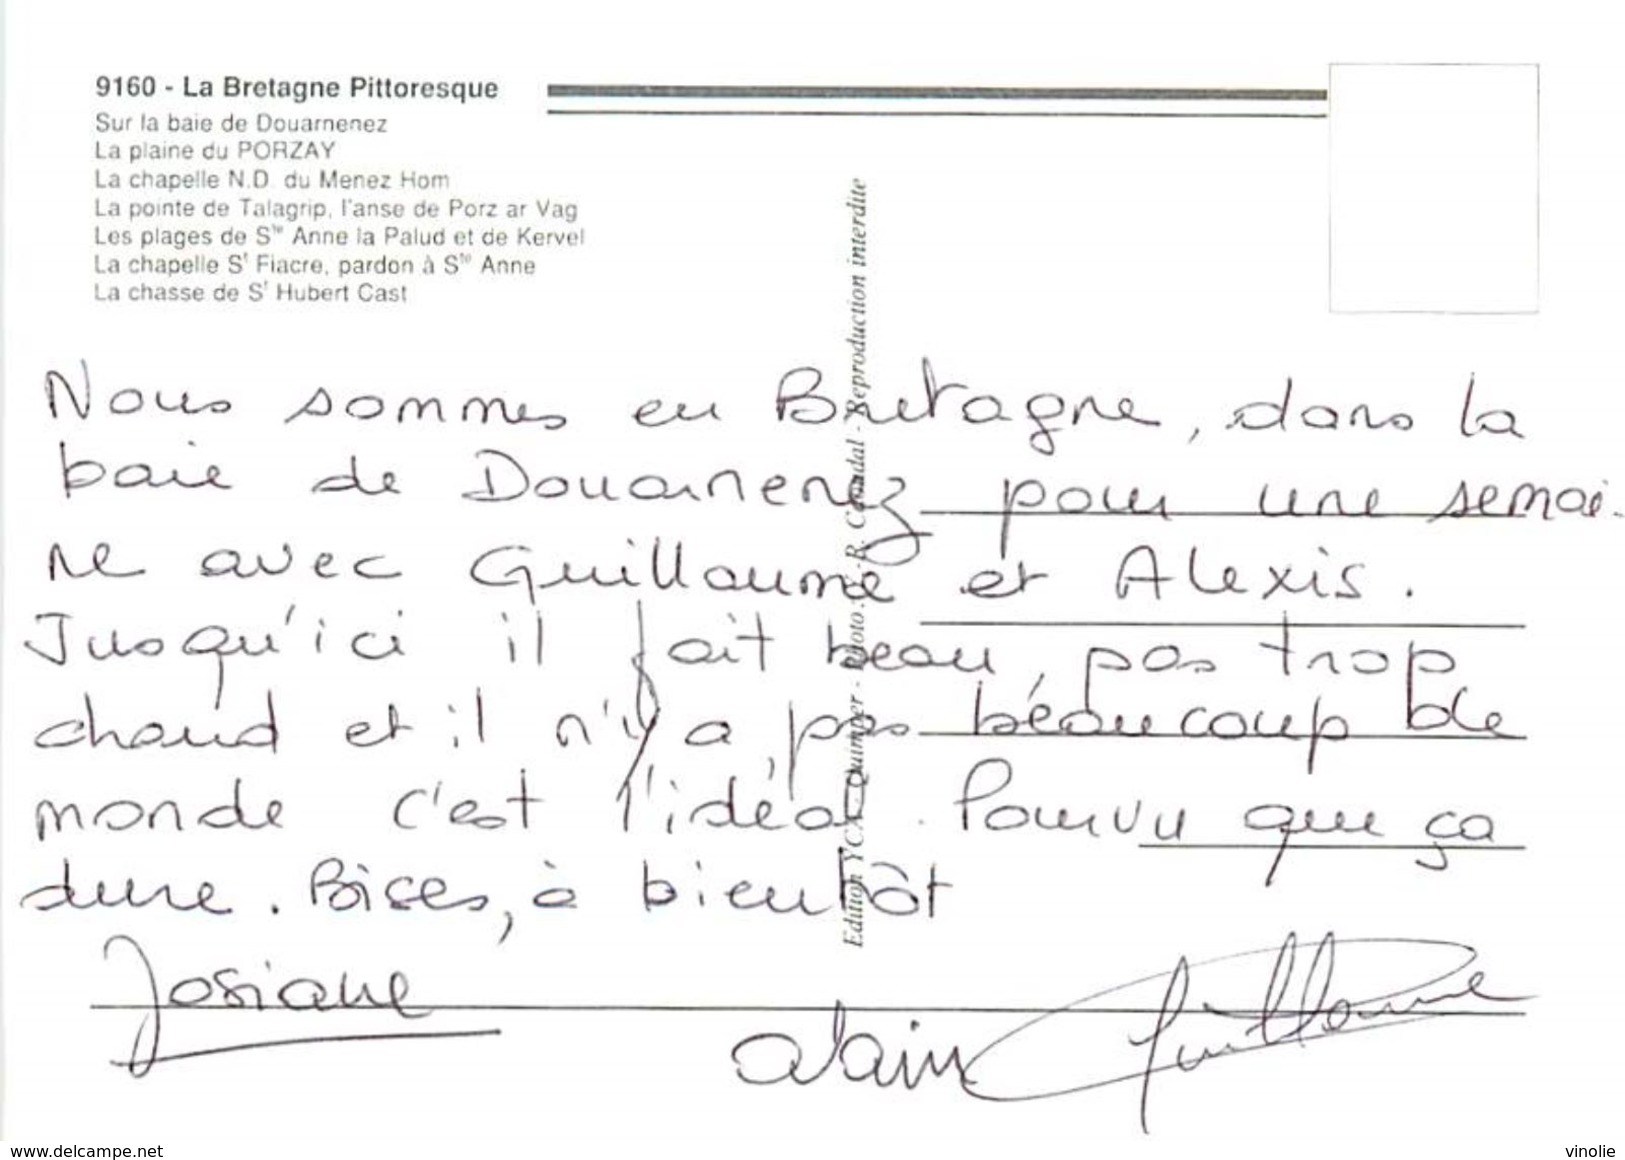 9160 - La Bretagne Pittoresque
Sur la baie de Douarnenez
La plaine du PORZAY
La chapelle N.D. du Menez Hom
La pointe de Talagrip, l'anse de Porz ar Vag
Les plages de Ste Anne la Palud et de Kervel
La chapelle St Fiacre, pardon à Ste Anne
La chasse de St Hubert Cast
Edition YCA - Quimper - Photo : R. Caoudal - Reproduction interdite
Nous sommes en Bretagne, dans la
baie de Douarnenez pour une semai-
ne avec Guillaume et Alexis.
Jusqu'ici il fait beau, pas trop
chaud et il n'y a pas beaucoup de
monde, c'est l'idéal. Pourvu que ça
dure. Bises, à bientôt
Josiane
alain Guillaume
www.delcampe.net
vinolie